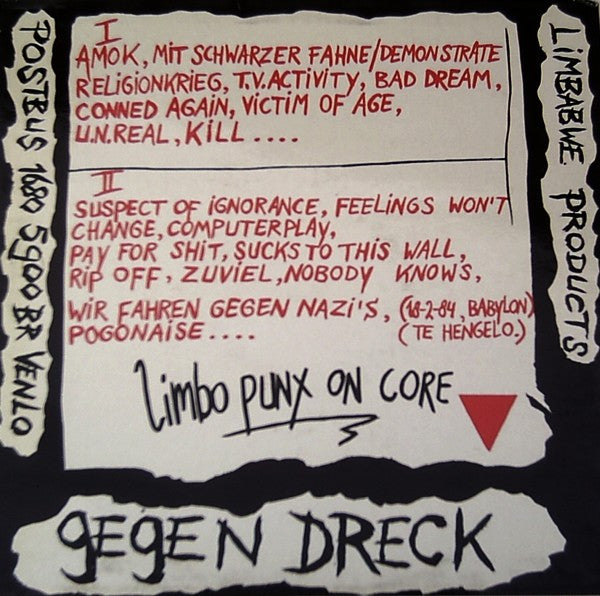 I
AMOK, MIT SCHWARZER FAHNE/DEMONSTRATE
RELIGIONKRIEG, T.V. ACTIVITY, BAD DREAM,
CONNED AGAIN, VICTIM OF AGE,
U.N.REAL, KILL ....
II
SUSPECT OF IGNORANCE, FEELINGS WON'T
CHANGE, COMPUTERPLAY,
PAY FOR SHIT, SUCKS TO THIS WALL,
RIP OFF, ZUVIEL, NOBODY KNOWS,
WIR FAHREN GEGEN NAZI'S, (18-2-84, BABYLON)
POGONAISE .... (TE HENGELO.)
Limbo PUNX ON CORE
GEGEN DRECK
POSTBUS 1680 5900 BR VENLO
LIMBABWE PRODUCTS